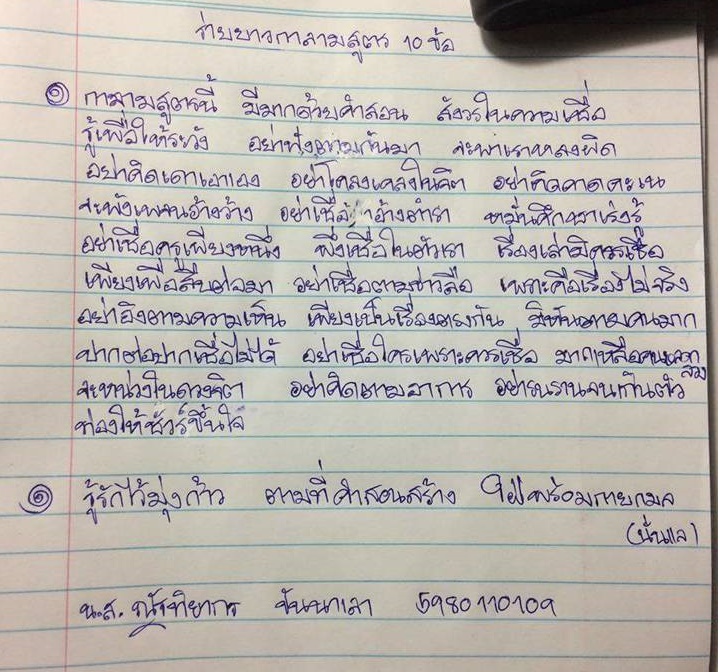 ร่ายยาวกาลามสูตร 10 ข้อ
๑ กาลามสูตรนี้ มีมากด้วยคำสอน สังวรในความเชื่อ
รู้เพื่อให้ระวัง อย่าฟังตามกันมา จะพาเราหลงผิด
อย่าคิดเดาเอาเอง อย่าโคลงเคลงในจิต อย่าคิดคาดคะเน
จะพังเพจนอ้างว้าง อย่าเชื่ออ้างตำรา หมั่นศึกษาเร่งรู้
อย่าเชื่อครูเพียงหนึ่ง พึงเชื่อในตัวเรา เรื่องเล่ามิควรเชื่อ
เพียงเพื่อสืบต่อมา อย่าเชื่อตามข่าวลือ เพราะคือเรื่องไม่จริง
อย่าอิงตามความเห็น เพียงเป็นเรื่องตรงกัน มิหันตามคนมาก
ปากต่อปากเชื่อไม่ได้ อย่าเชื่อใครเพราะควรเชื่อ มากเหลือคนหลอกลวง
จะหน่วงในดวงจิต อย่าคิดตามอาการ อย่ารนรานจนเกินตัว
ท่องให้ชัวร์ขึ้นใจ
๑ รู้รักไว้มุ่งก้าว ตามที่คำสอนสร้าง ใฝ่พร้อมกายกมล
(นั่นแล)
น.ส. ณัฐทิยากร จันนาเลา 5980110109